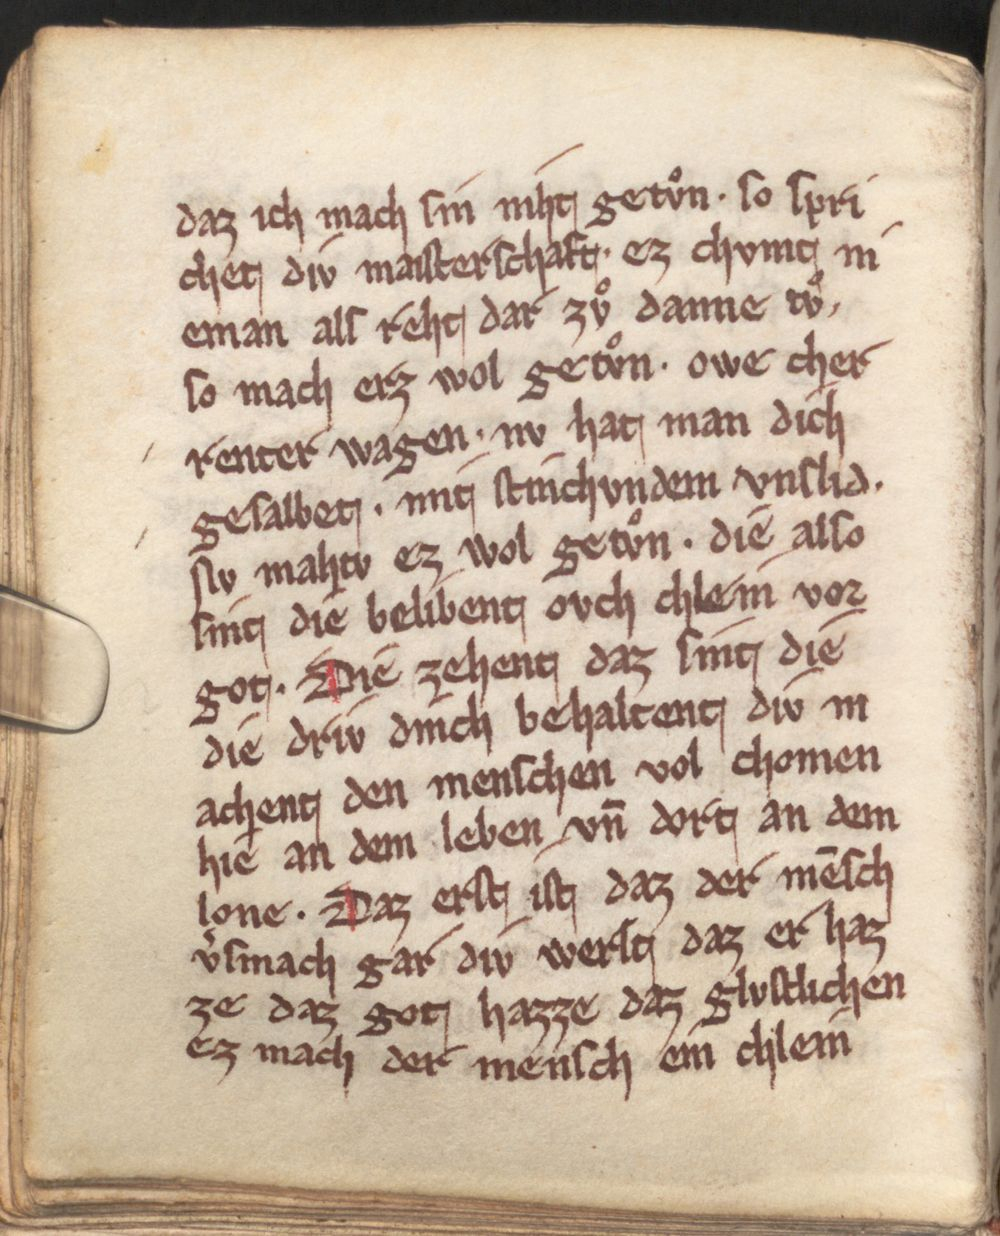 daz ich mach sin niht getvͦn · so spri
chet div maisterschaft · ez chvmt ni
eman als reht dar zvͦ danne tvͦ,
so mach erz wol getvͦn · owe cher
renter wagen · nv hat man dich
gesalbet · mit stinchvndem vnslid ·
siv mahtv ez wol getvͦn · die also
sint die belibent ovch chlein vor
got · Die zehent daz sint die
die driv dinch behaltent div m
achent den menschen vol chomen
hie an dem leben vn̄ dort an dem
lone · Daz erst ist daz der mēsch
v͛smach gar div werlt daz er haz
ze daz got hazze daz glvstlichen
ez mach der mensch ein chlein